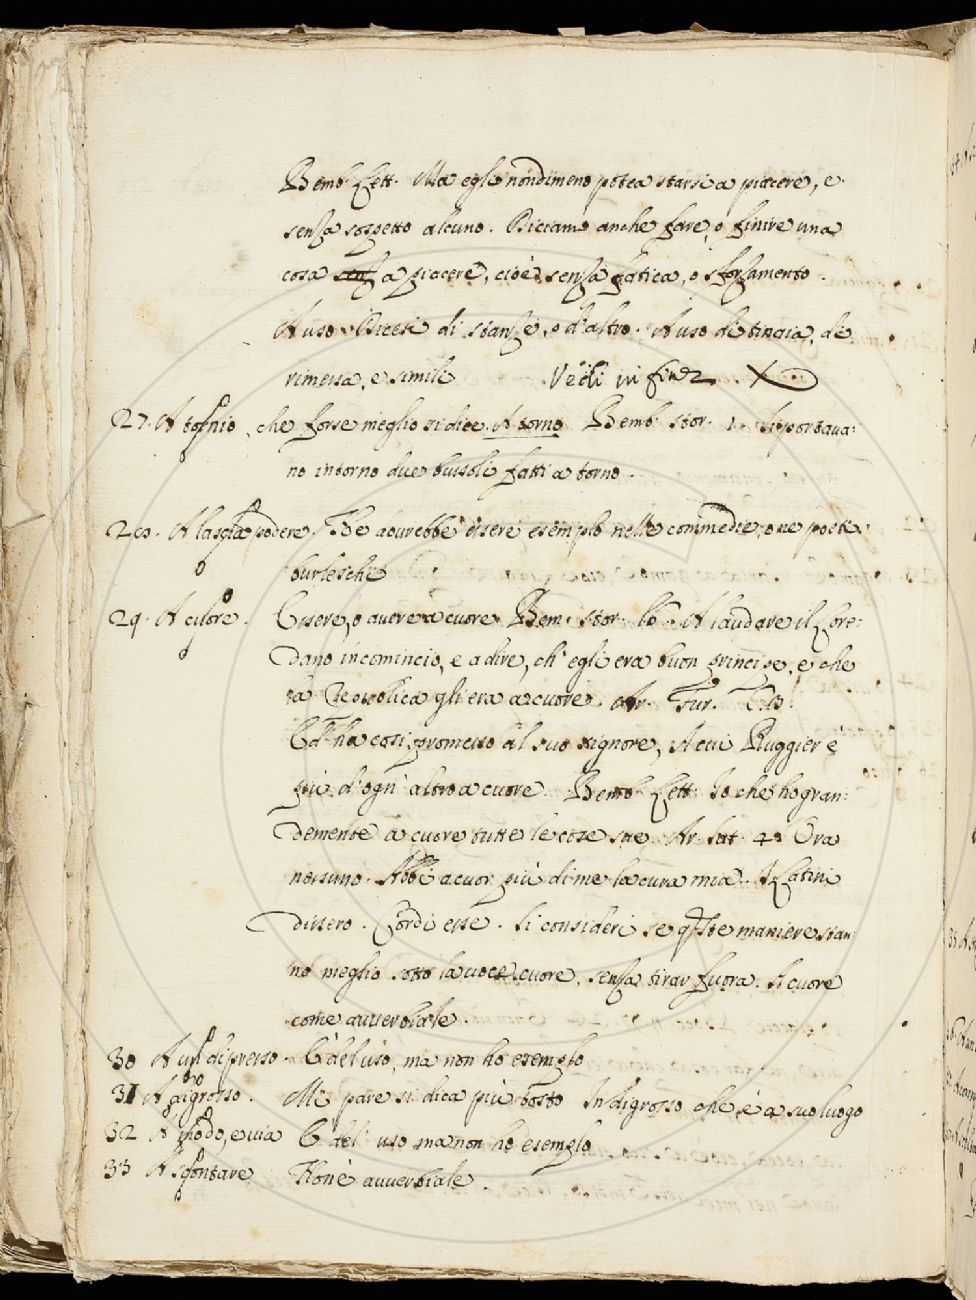 Bemb. Lett. Ma egli nondimeno potea starsi a piacere, e
senza sospetto alcuno. Diciamo anche fare, o finire una
cosa a piacere, cioè senza fatica, o sforzamento.
A uso. Dicesi di stanze, o d'altro. A uso di tinaia, di
rimessa, e simili Vedi in fine
27. A tornio, che forse meglio si dice A torno Bemb. stor. 1. si portava:
no intorno due bussoli fatti a torno.
28. A lascia podere. Se dovrebbe essere esempio nelle commedie, o ne poeti
burleschi
29. A cuore. Essere, o avere a cuore Bem. stor. 16. A laudare il Lore:
dano incominciò, e a dire, ch'egli era buon principe, e che
la Repubblica gli era a cuore. Ar. Fur.
E ha così promesso al suo signore, A cui Ruggier è
più d'ogn' altro a cuore. Bemb. Lett. Io che ho gran:
demente a cuore tutte le cose sue Ar. sat. 4. Ora
nessuno. Abbi a cuor più di me la cura mia. I Latini
dissero. Cordi esse. Si consideri se q.ste maniere stan:
no meglio sotto la voce cuore, senza tirar fuora. A cuore
come avverbiale.
30 A un di presso. E' del uso, ma non ho esempio
31 A digrosso. Mi pare si dica più tosto In digrosso che è a suo luogo
32 A modo, e via E' dell' uso ma non ho esempio
33 A sfontare Non è avverbiale.